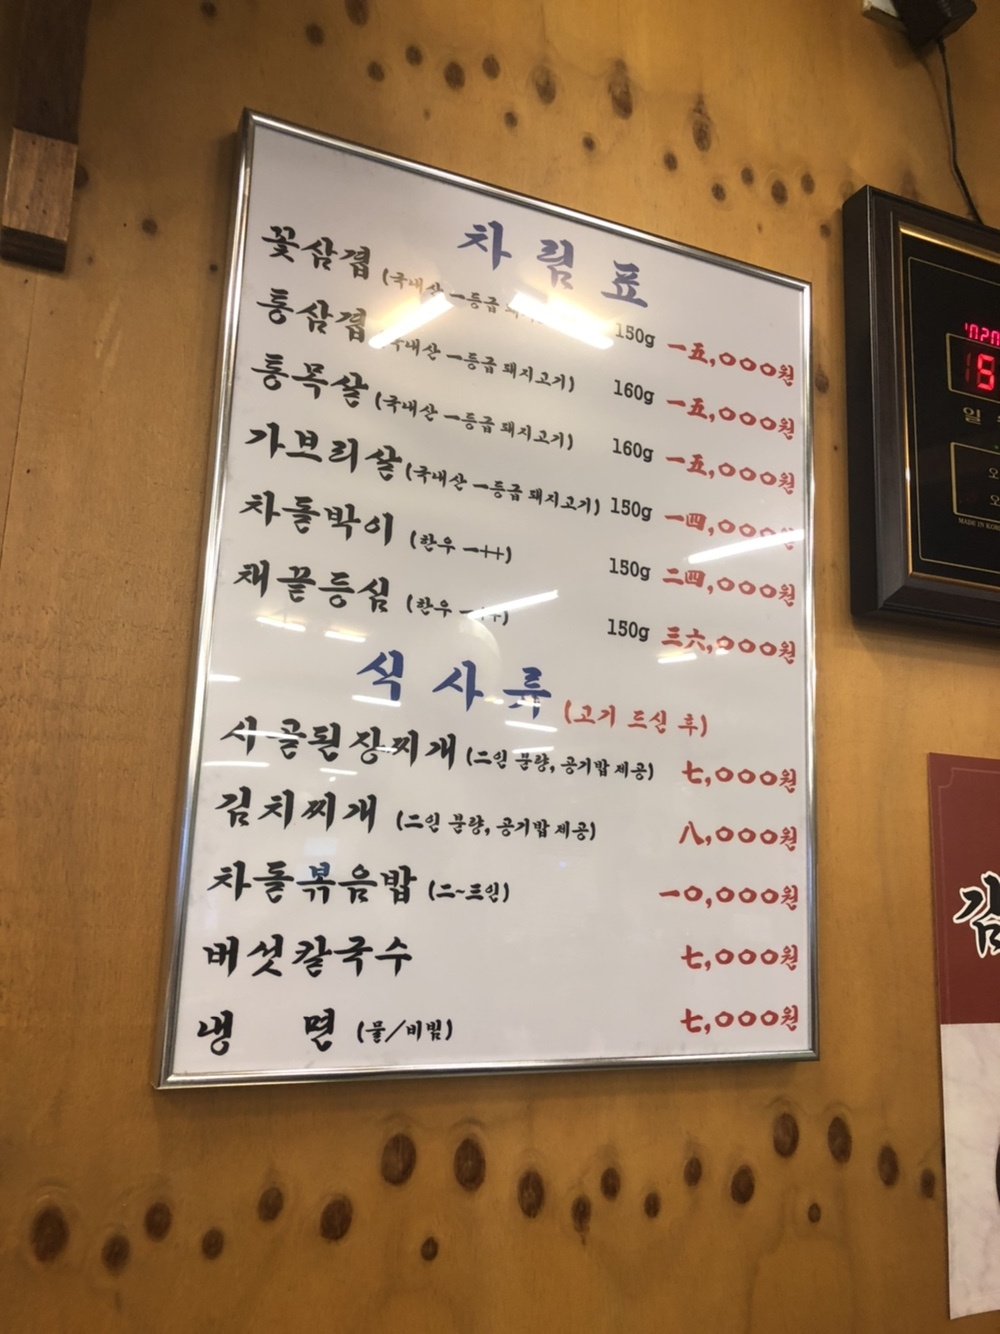 차림표
꽃삼겹 (국내산 一등급 150g 一五,000원
통삼겹 (국내산 一등급 돼지고기) 160g 一五,000원
통목살 (국내산 一등급 돼지고기) 160g 一五,000원
가브리살 (국내산 一등급 돼지고기) 150g 一四,000원
차돌박이 (한우 一++) 150g 二四,000원
채끝등심 (한우 一++) 150g 三六,000원
식사류 (고기 드신 후)
시골된장찌개 (二인 분량, 공기밥 제공) 七,000원
김치찌개 (二인 분량, 공기밥 제공) 八,000원
차돌볶음밥 (二~三인) 一0,000원
버섯칼국수 七,000원
냉 면 (물/비빔) 七,000원
일
MADE IN KOR